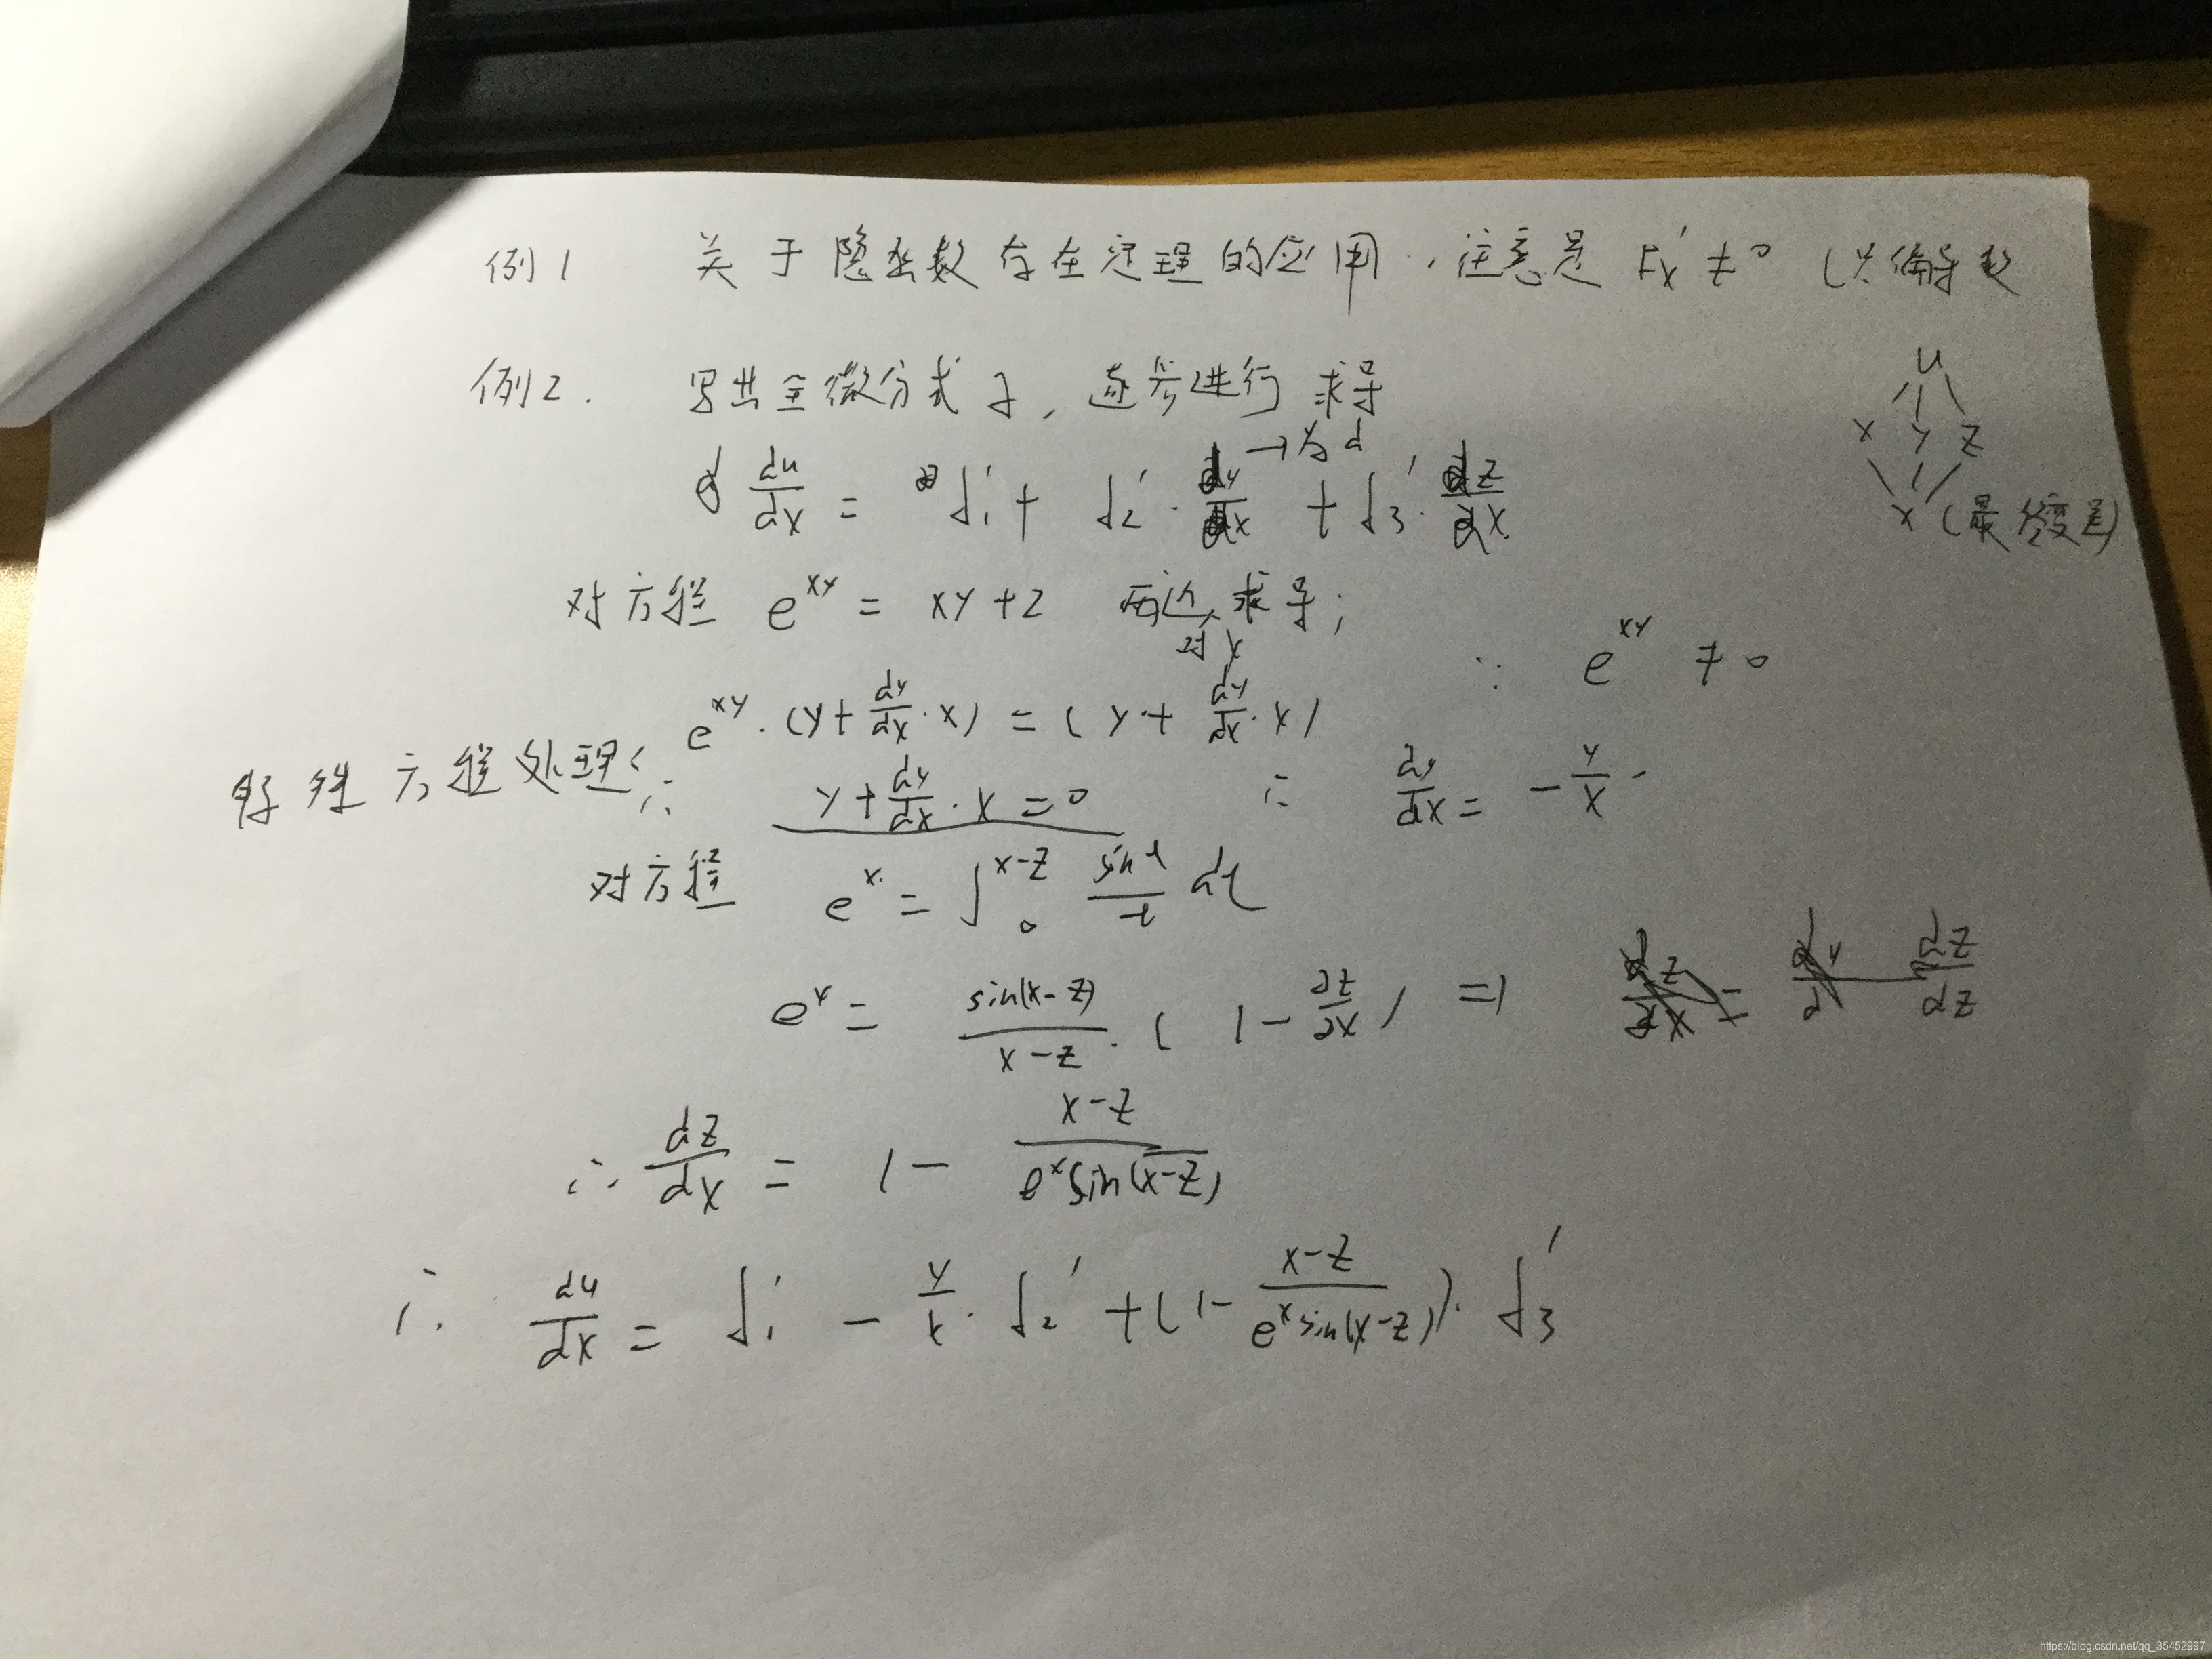 例1 关于隐函数存在定理的应用,注意是 Fx' ≠ 0 (
例2. 写出全微分式子,逐步进行求导
U
X Y Z
X (最终变量)
→为d
du/dx = f1' + f2' · dy/dx + f3' · dz/dx
对方程 e^xy = xy+2 两边求导;
对x
∵ e^xy ≠ 0
e^xy · (y + dy/dx · x) = (y + dy/dx · x)
方程处理 ∴ y + dy/dx · x = 0 ∴ dy/dx = - y/x ·
对方程 e^x = ∫_0^x-z sint/t dt
e^x = sin(x-z)/x-z · (1 - ∂z/∂x) ⇒ dz/dz
∴ dz/dx = 1 - x-z/e^x sin(x-z)
∴ du/dx = f1' - y/x · f2' + (1 - x-z/e^x sin(x-z)) · f3'
https://blog.csdn.net/qq_35452997